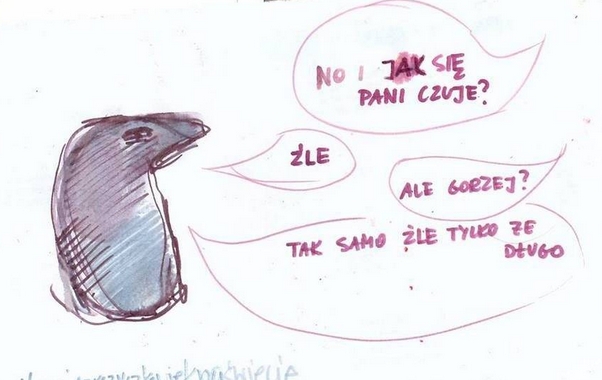 NO I JAK SIĘ
PANI CZUJE?
ŹLE
ALE GORZEJ?
TAK SAMO ŹLE TYLKO ŻE
DŁUGO